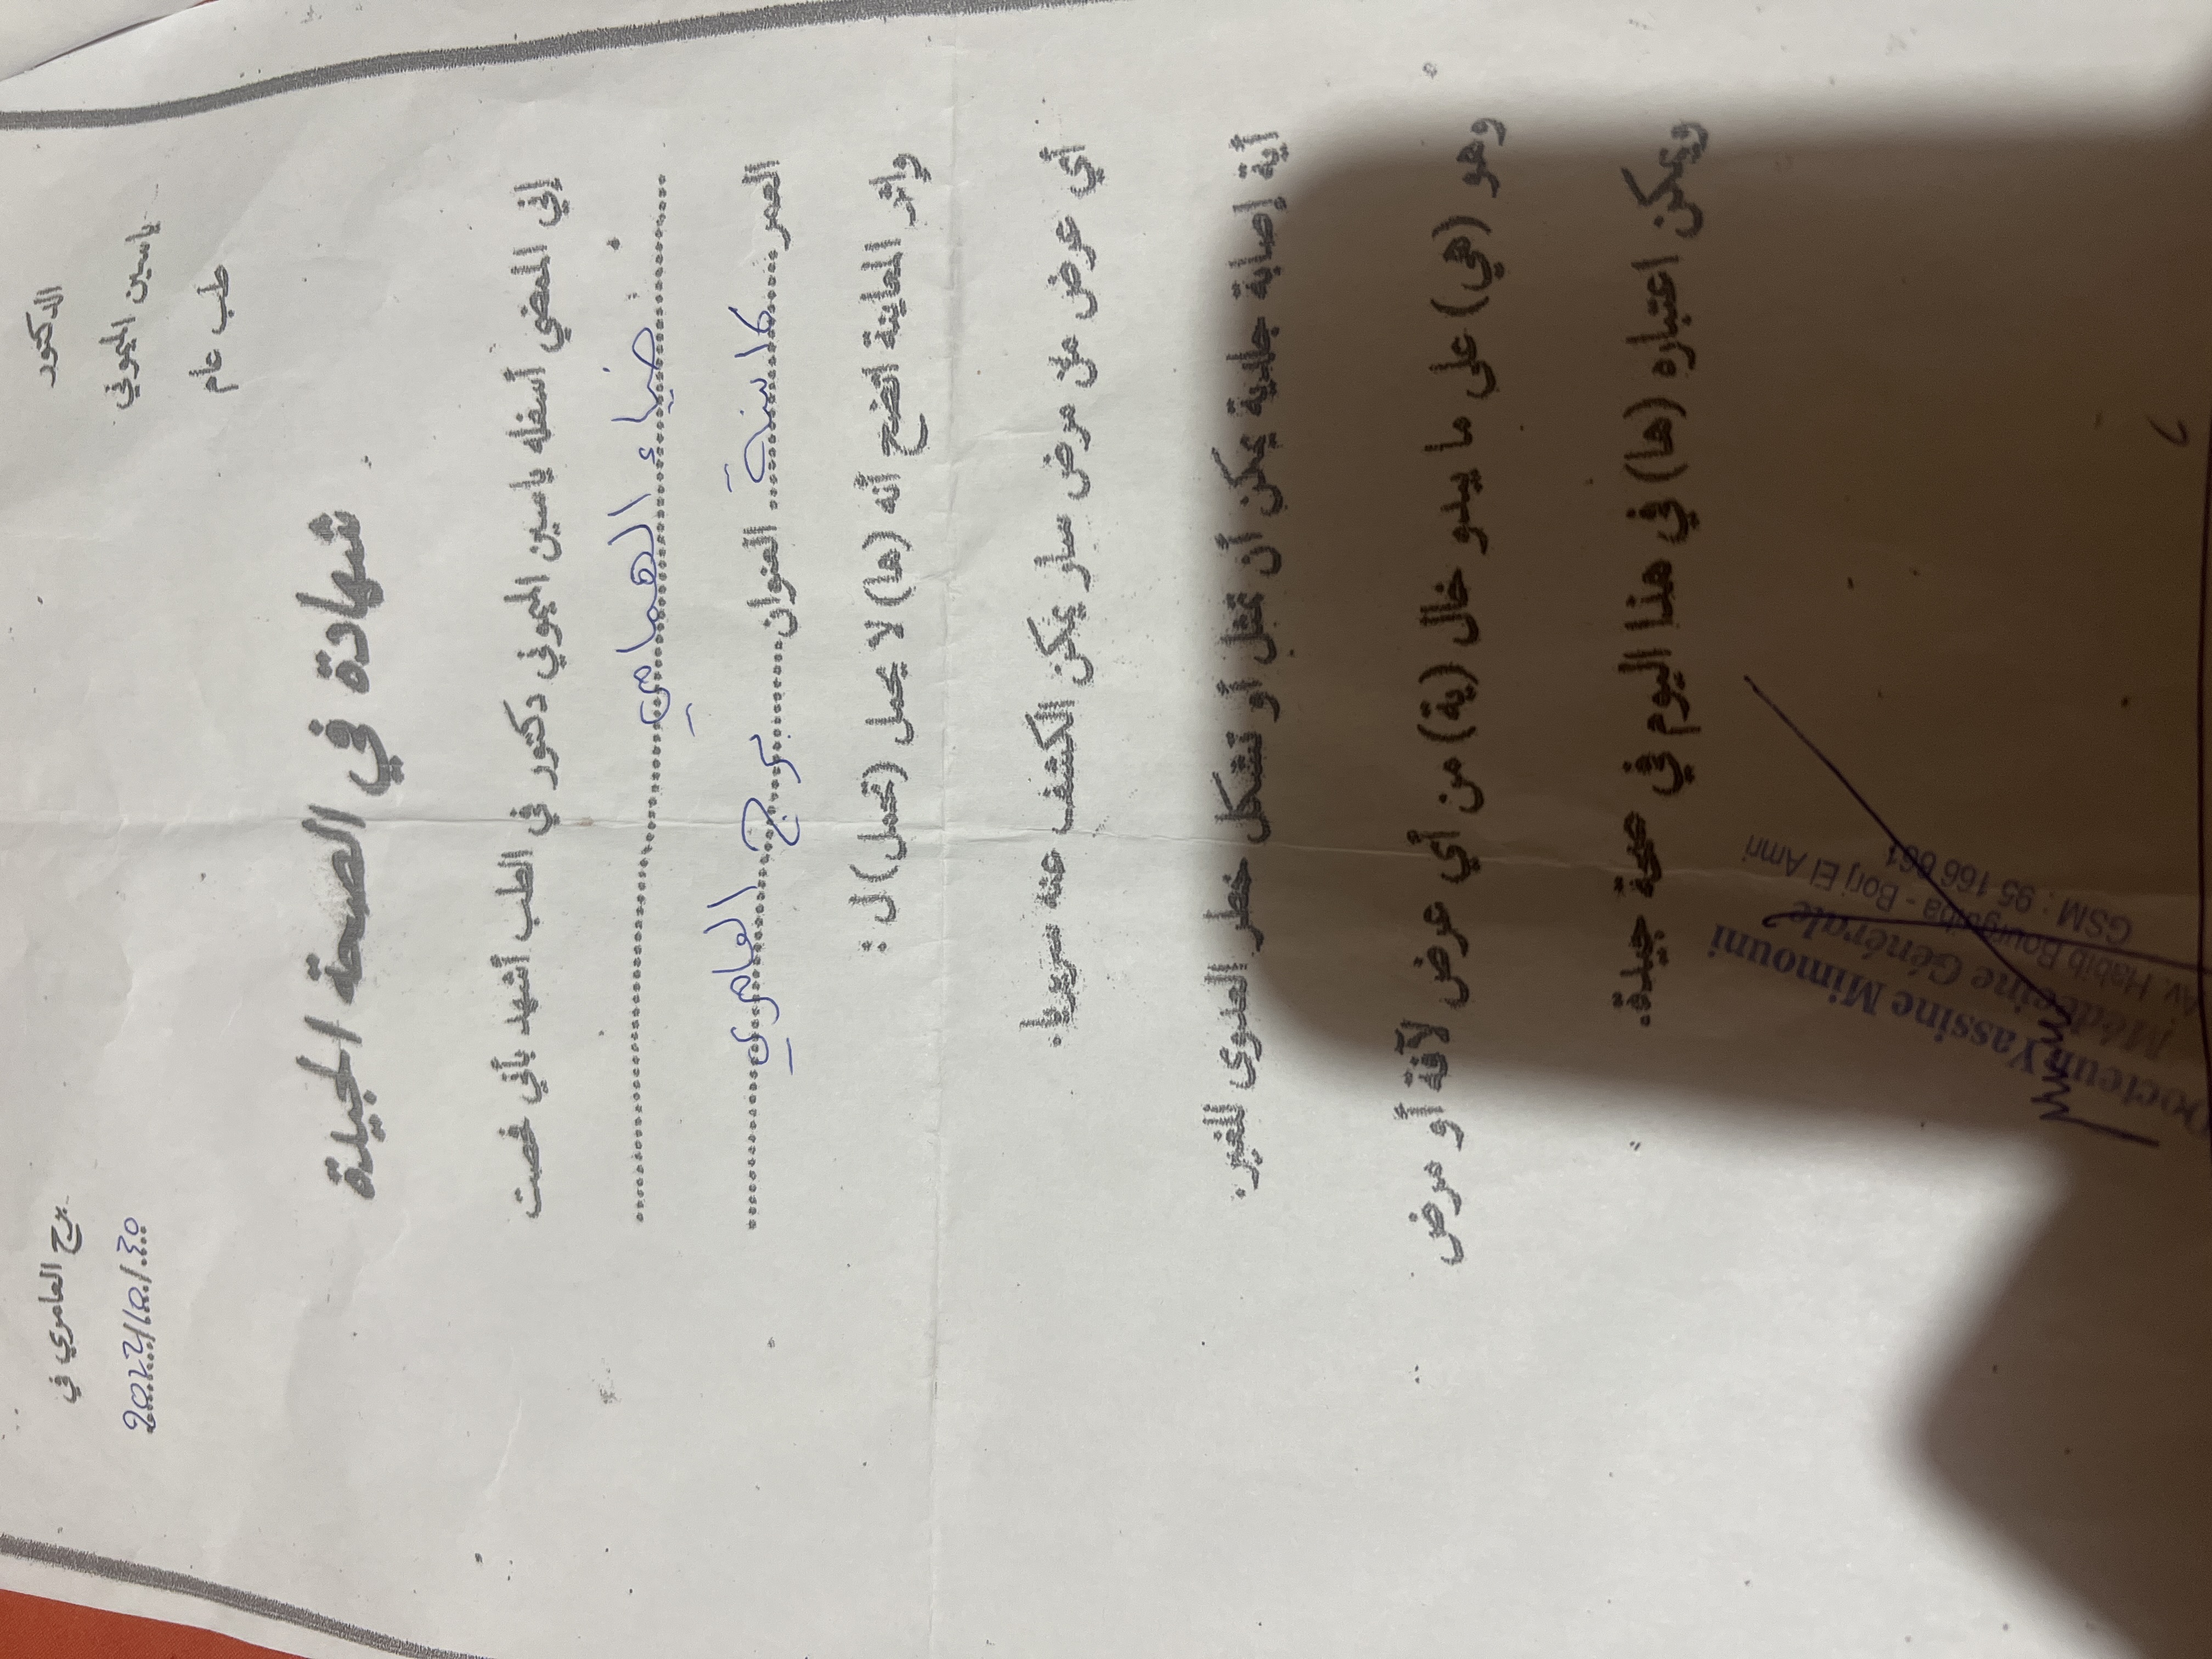 الدكتور
ياسين الميموني
طب عام
برج العامري في
شهادة في الصحة الجيدة
إني الممضي أسفله ياسين الميموني دكتور في الطب أشهد بأني فحصت
ضياء الهمامي
العمر سنة العنوان برج العامري
واثر المعاينة اتضح أنه (ها) لا يحمل (تحمل) ل :
أي عرض من مرض سار يمكن الكشف عنه سريريا.
أية إصابة جلدية يمكن أن تمثل أو تشكل خطر العدوى للغير.
وهو (هي) على ما يبدو خال (ية) من أي عرض لآفة أو مرض
ويمكن اعتباره (ها) في هذا اليوم في صحة جيدة.
Docteur Yassine Mimouni
Médecine Générale
Av. Habib Bourguiba - Borj El Amri
GSM : 95 166 661